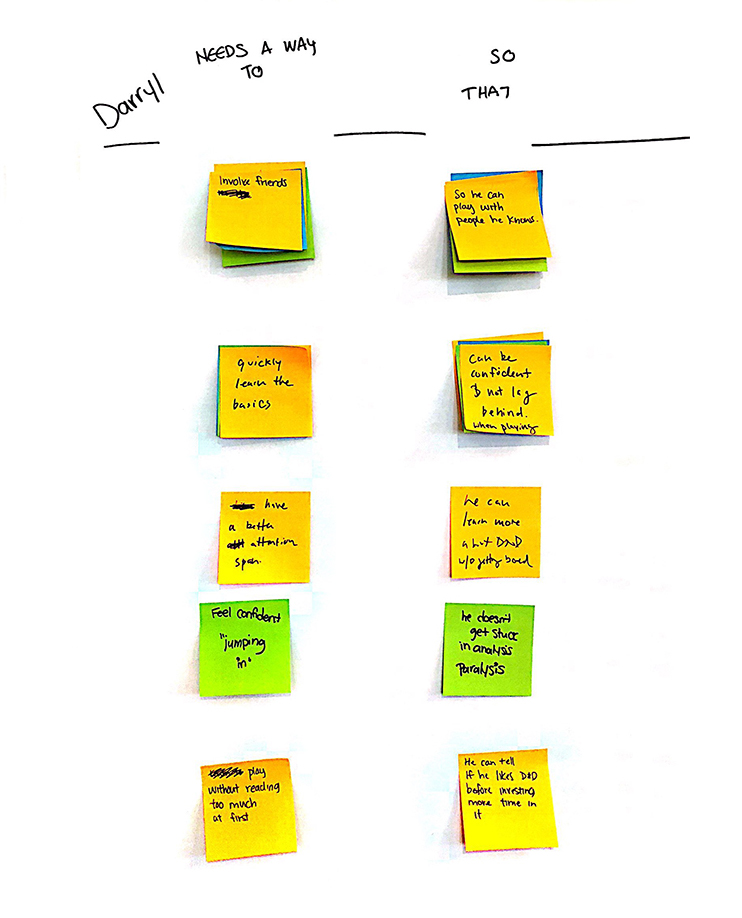 Darryl
NEEDS A WAY
TO
SO
THAT
Involve friends
So he can
play with
people he knows.
quickly
learn the
basics
Can be
confident
& not lag
behind.
when playing
have
a better
attention
span.
he can
learn more
about DND
w/o getting bored
Feel confident
"jumping
in"
he doesn't
get stuck
in analysis
Paralysis
play
without reading
too much
at first
He can tell
If he likes D&D
before investing
more time in
it